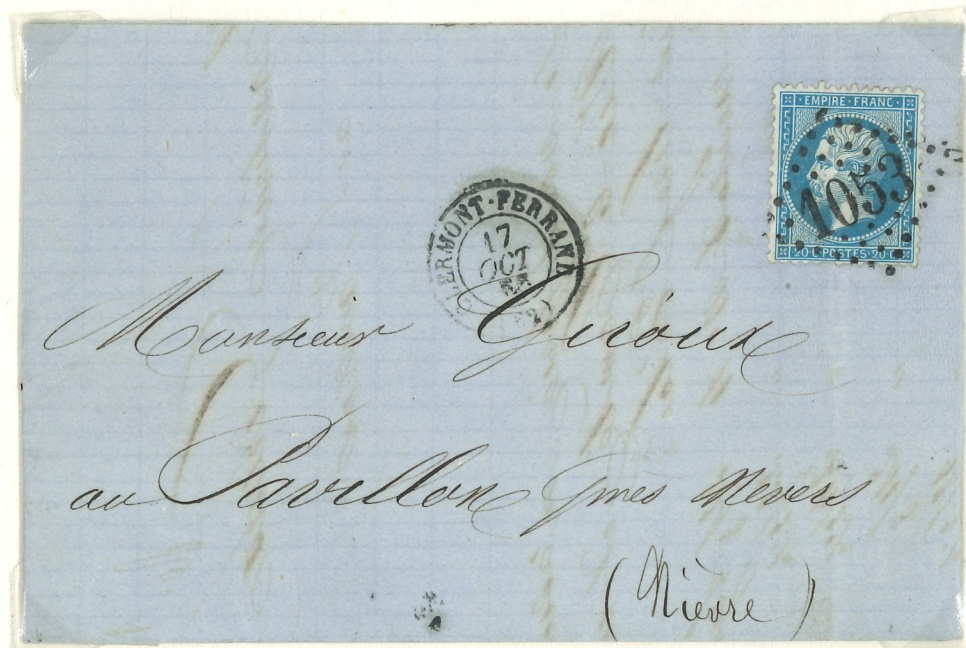 EMPIRE·FRANC
1053
20 C·POSTES·20 C
CLERMONT-FERRAND
17
OCT
Monsieur Giroux
au Pavillon près Nevers
(Nièvre)